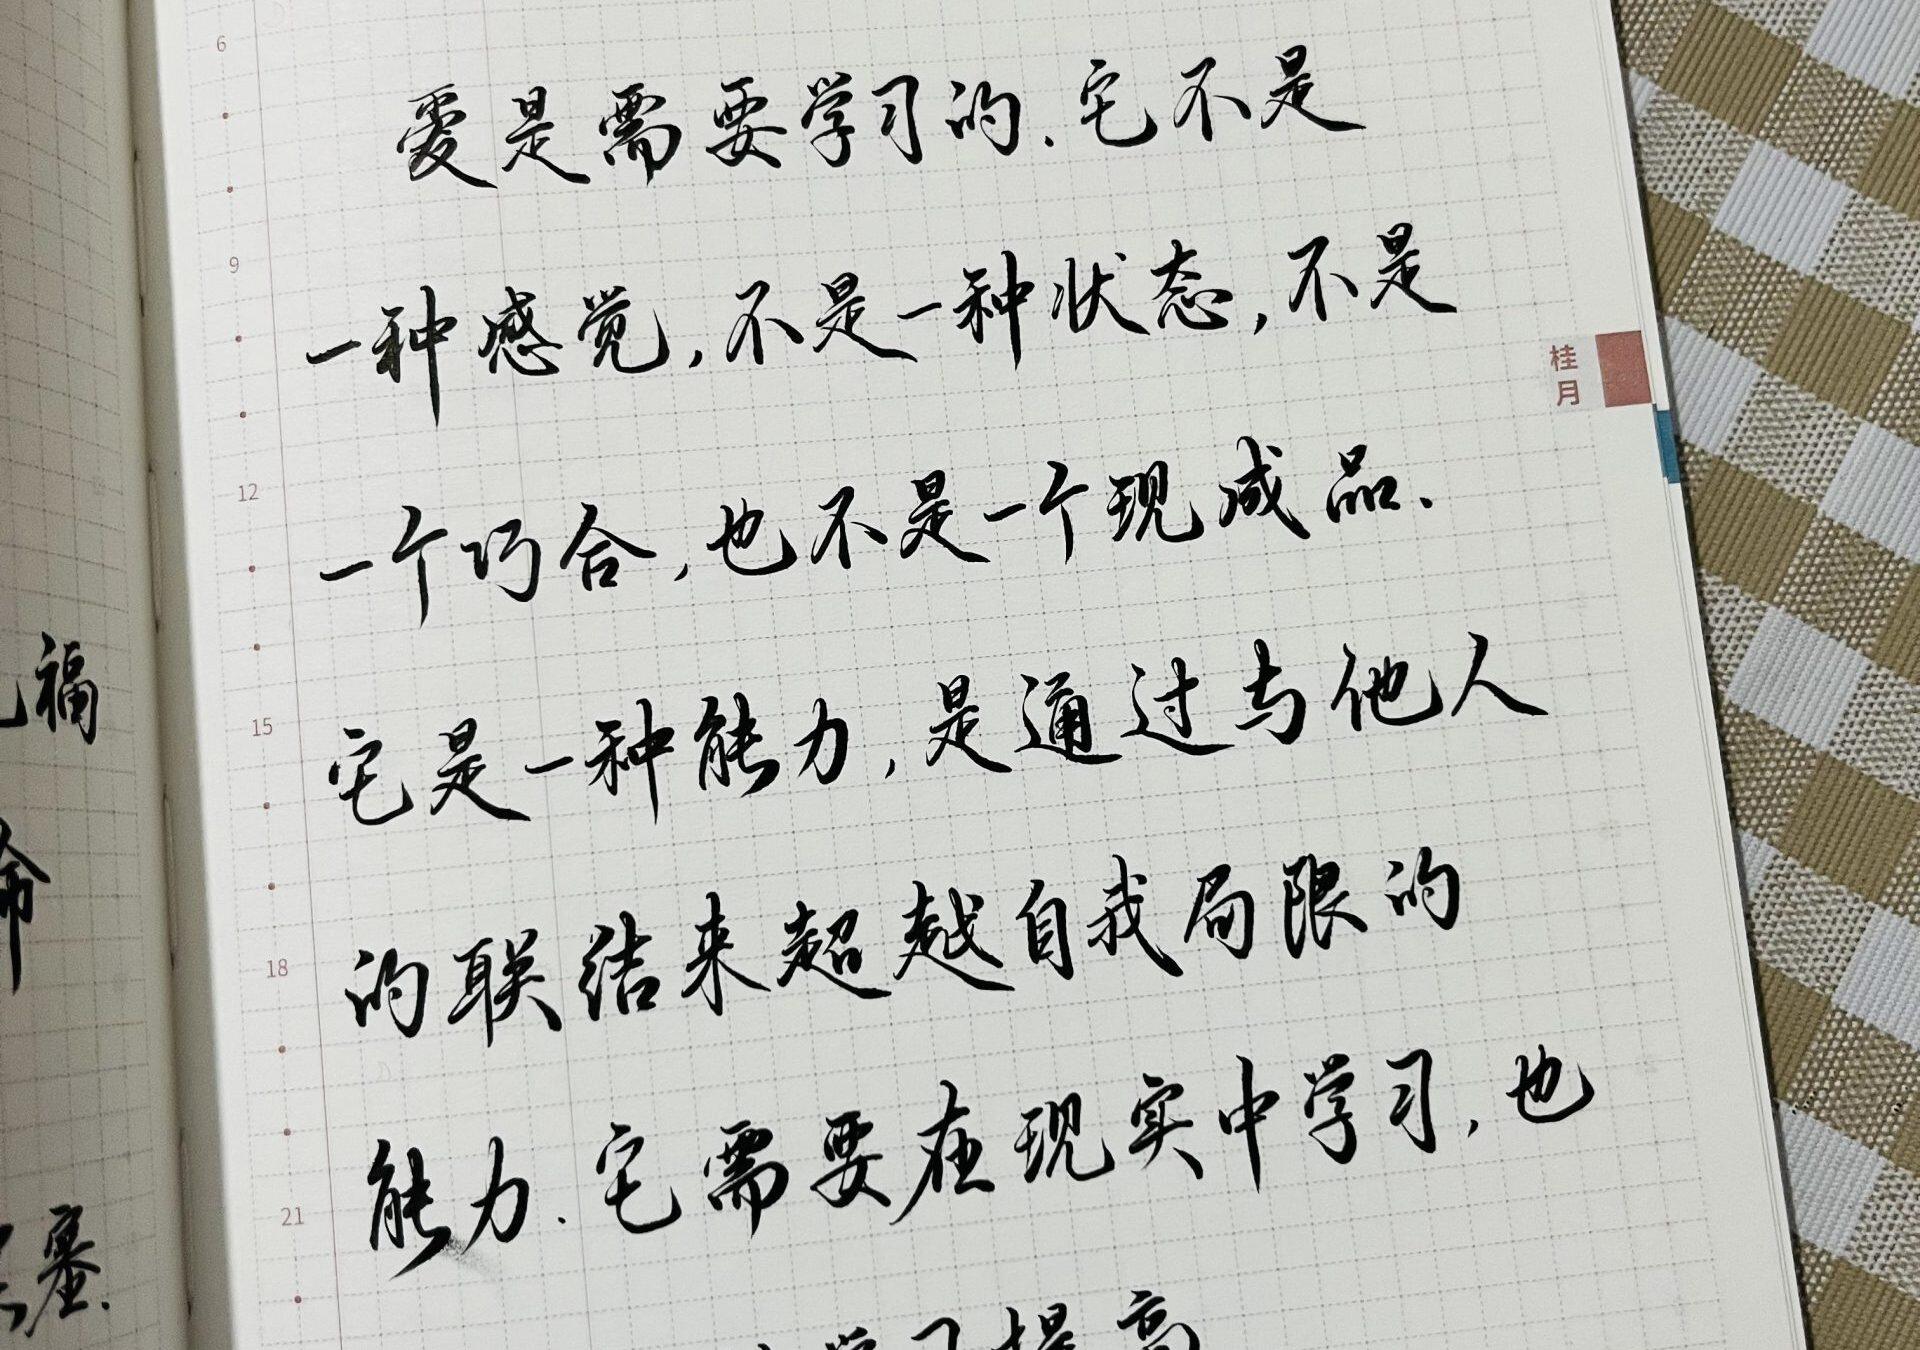 6
爱是需要学习的.它不是
9
一种感觉,不是一种状态,不是
桂月
12
一个巧合,也不是一个现成品.
福
15
它是一种能力,是通过与他人
18
的联结来超越自我局限的
21
能力.它需要在现实中学习,也
塞.
学习提高